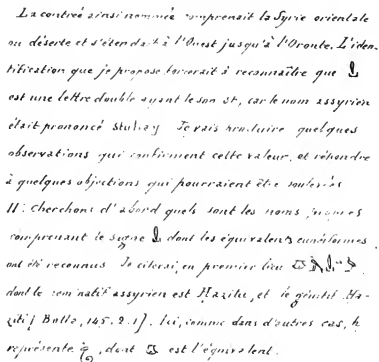 La contrée ainsi nommée comprenait la Syrie orientale
ou déserte et s'étendait à l'Ouest jusqu'à l'Oronte. L'iden-
tification que je propose forcerait à reconnaître que
est une lettre double ayant le son st, car le nom assyrien
était prononcé Je vais produire quelques
observations qui confirment cette valeur, et répondre
à quelques objections qui pourraient être soulevées
II: Cherchons d'abord quels sont les noms propres
comprenant le signe dont les équivalents cunéiformes
ont été reconnus Je citerai, en premier lieu
dont le nominatif assyrien est Hazitu, et le génitif Ha-
ziti [Botta, 145. 2. 1]. Ici, comme dans d'autres cas, h
représente dont est l'équivalent.